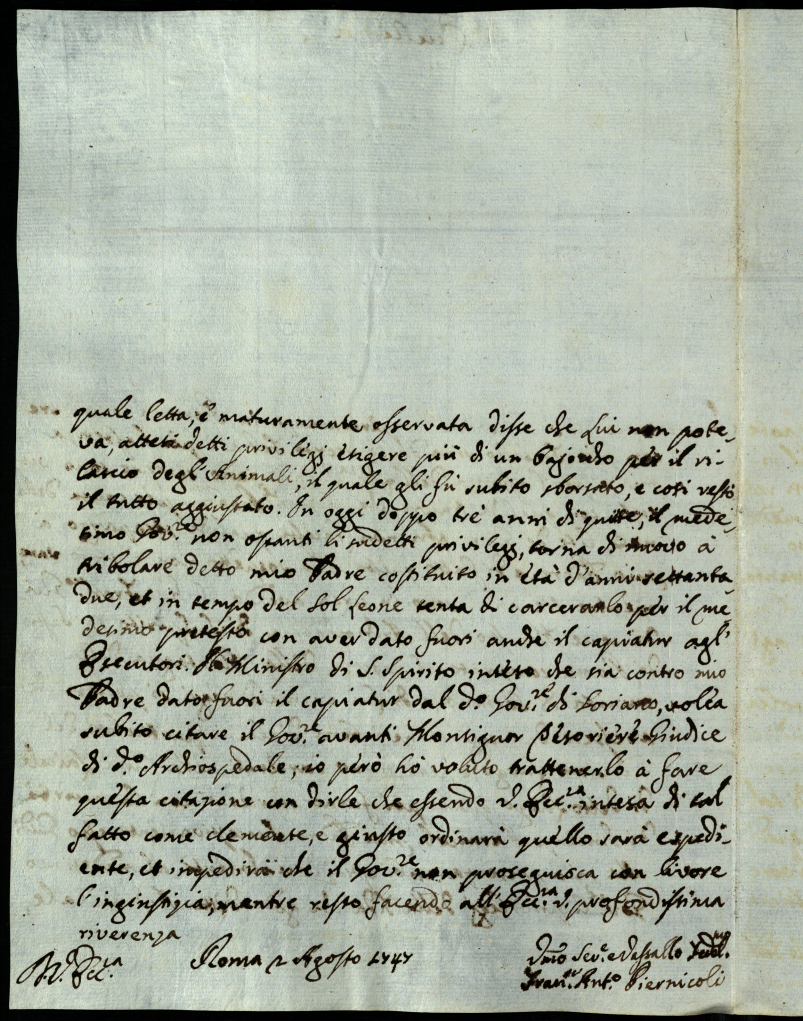 quale letta, e maturamente osservata disse che Lui non pote-
va, attesi detti privilegj esigere più di un bajocho per il ri-
lascio degl'Animali, il quale gli fù subito sborsato, e così restò
il tutto aggiustato. In oggi doppo trè anni di quiete, il mede-
simo Gov.re non ostanti li sudetti privilegj, torna di nuovo à
tribolare detto mio Padre costituito in età d'anni settanta
due, et in tempo del Sol Leone tenta di carcerarlo per il me
desimo pretesto con aver dato fuori anche il capiatur agl'
Esecutori. Il Ministro di S. Spirito inteso che sia contro mio
Padre dato fuori il capiatur dal d.o Gov.re di Soriano, volea
subito citare il Gov.re avanti Monsignor Tesoriere Giudice
di d.o Archiospedale; io però hò voluto trattenerlo à fare
questa citazione con dirle che essendo V. Ecc.za intesa di tal
fatto come clemente, e giusto ordinarà quello sarà espedi-
ente, et impedirà che il Gov.re non proseguisca con livore
l'ingiustizia, mentre resto facendo all'Ecc.za V. profondissima
riverenza
D. V. Ecc.za Roma 2 Agosto 1747 Dmo Ser.e e Vassallo
Fran.co Ant.o Piernicoli